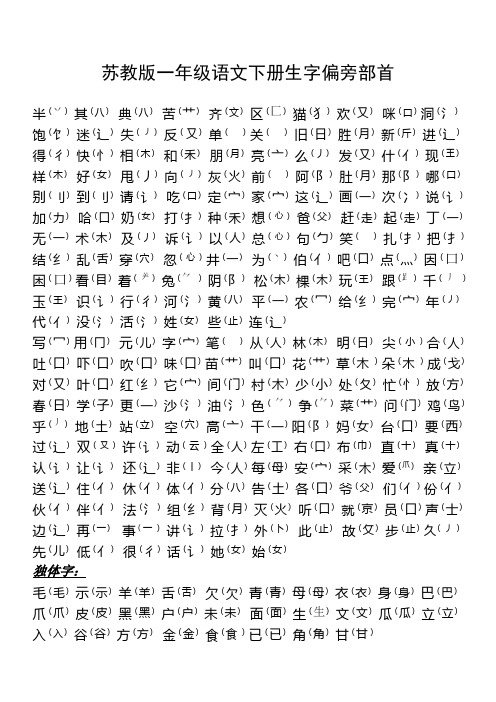 苏教版一年级语文下册生字偏旁部首
半(丷) 其(八) 典(八) 苦(艹) 齐(文) 区(匚) 猫(犭) 欢(又) 咪(口) 洞(氵)
饱(饣) 迷(辶) 失(丿) 反(又) 单( ) 关( ) 旧(日) 胜(月) 新(斤) 进(辶)
得(彳) 快(忄) 相(木) 和(禾) 朋(月) 亮(亠) 么(丿) 发(又) 什(亻) 现(王)
样(木) 好(女) 甩(丿) 向(丿) 灰(火) 前( ) 阿(阝) 肚(月) 那(阝) 哪(口)
别(刂) 到(刂) 请(讠) 吃(口) 定(宀) 家(宀) 这(辶) 画(一) 次(冫) 说(讠)
加(力) 哈(口) 奶(女) 打(扌) 种(禾) 想(心) 爸(父) 赶(走) 起(走) 丁(一)
无(一) 术(木) 及(丿) 诉(讠) 以(人) 总(心) 句(勹) 笑( ) 扎(扌) 把(扌)
结(纟) 乱(舌) 穿(穴) 忽(心) 井(一) 为(丶) 伯(亻) 吧(口) 点(灬) 因(囗)
困(囗) 看(目) 着(⺶) 兔(⺈) 阴(阝) 松(木) 棵(木) 玩(王) 跟(⻊) 千(丿)
玉(王) 识(讠) 行(彳) 河(氵) 黄(八) 平(一) 农(冖) 给(纟) 完(宀) 年(丿)
代(亻) 没(氵) 活(氵) 姓(女) 些(止) 连(辶)
写(冖) 用(冂) 元(儿) 字(宀) 笔( ) 从(人) 林(木) 明(日) 尖(小) 合(人)
吐(口) 吓(口) 吹(口) 味(口) 苗(艹) 叫(口) 花(艹) 草(木) 朵(木) 成(戈)
对(又) 叶(口) 红(纟) 它(宀) 间(门) 村(木) 少(小) 处(夂) 忙(忄) 放(方)
春(日) 学(子) 更(一) 沙(氵) 油(氵) 色(⺈) 争(⺈) 菜(艹) 问(门) 鸡(鸟)
乎(丿) 地(土) 站(立) 空(穴) 高(亠) 干(一) 阳(阝) 妈(女) 台(口) 要(西)
过(辶) 双(又) 许(讠) 动(云) 全(人) 左(工) 右(口) 布(巾) 直(十) 真(十)
认(讠) 让(讠) 还(辶) 非(丨) 今(人) 每(母) 安(宀) 采(木) 爱(爫) 亲(立)
送(辶) 住(亻) 休(亻) 体(亻) 分(八) 告(土) 各(口) 爷(父) 们(亻) 份(亻)
伙(亻) 伴(亻) 法(氵) 组(纟) 背(月) 灭(火) 听(口) 就(京) 员(口) 声(士)
边(辶) 再(一) 事(一) 讲(讠) 拉(扌) 外(卜) 此(止) 故(攵) 步(止) 久(丿)
先(儿) 低(亻) 很(彳) 话(讠) 她(女) 始(女)
独体字：
毛(毛) 示(示) 羊(羊) 舌(舌) 欠(欠) 青(青) 母(母) 衣(衣) 身(身) 巴(巴)
爪(爪) 皮(皮) 黑(黑) 户(户) 未(未) 面(面) 生(生) 文(文) 瓜(瓜) 立(立)
入(入) 谷(谷) 方(方) 金(金) 食(食) 已(已) 角(角) 甘(甘)